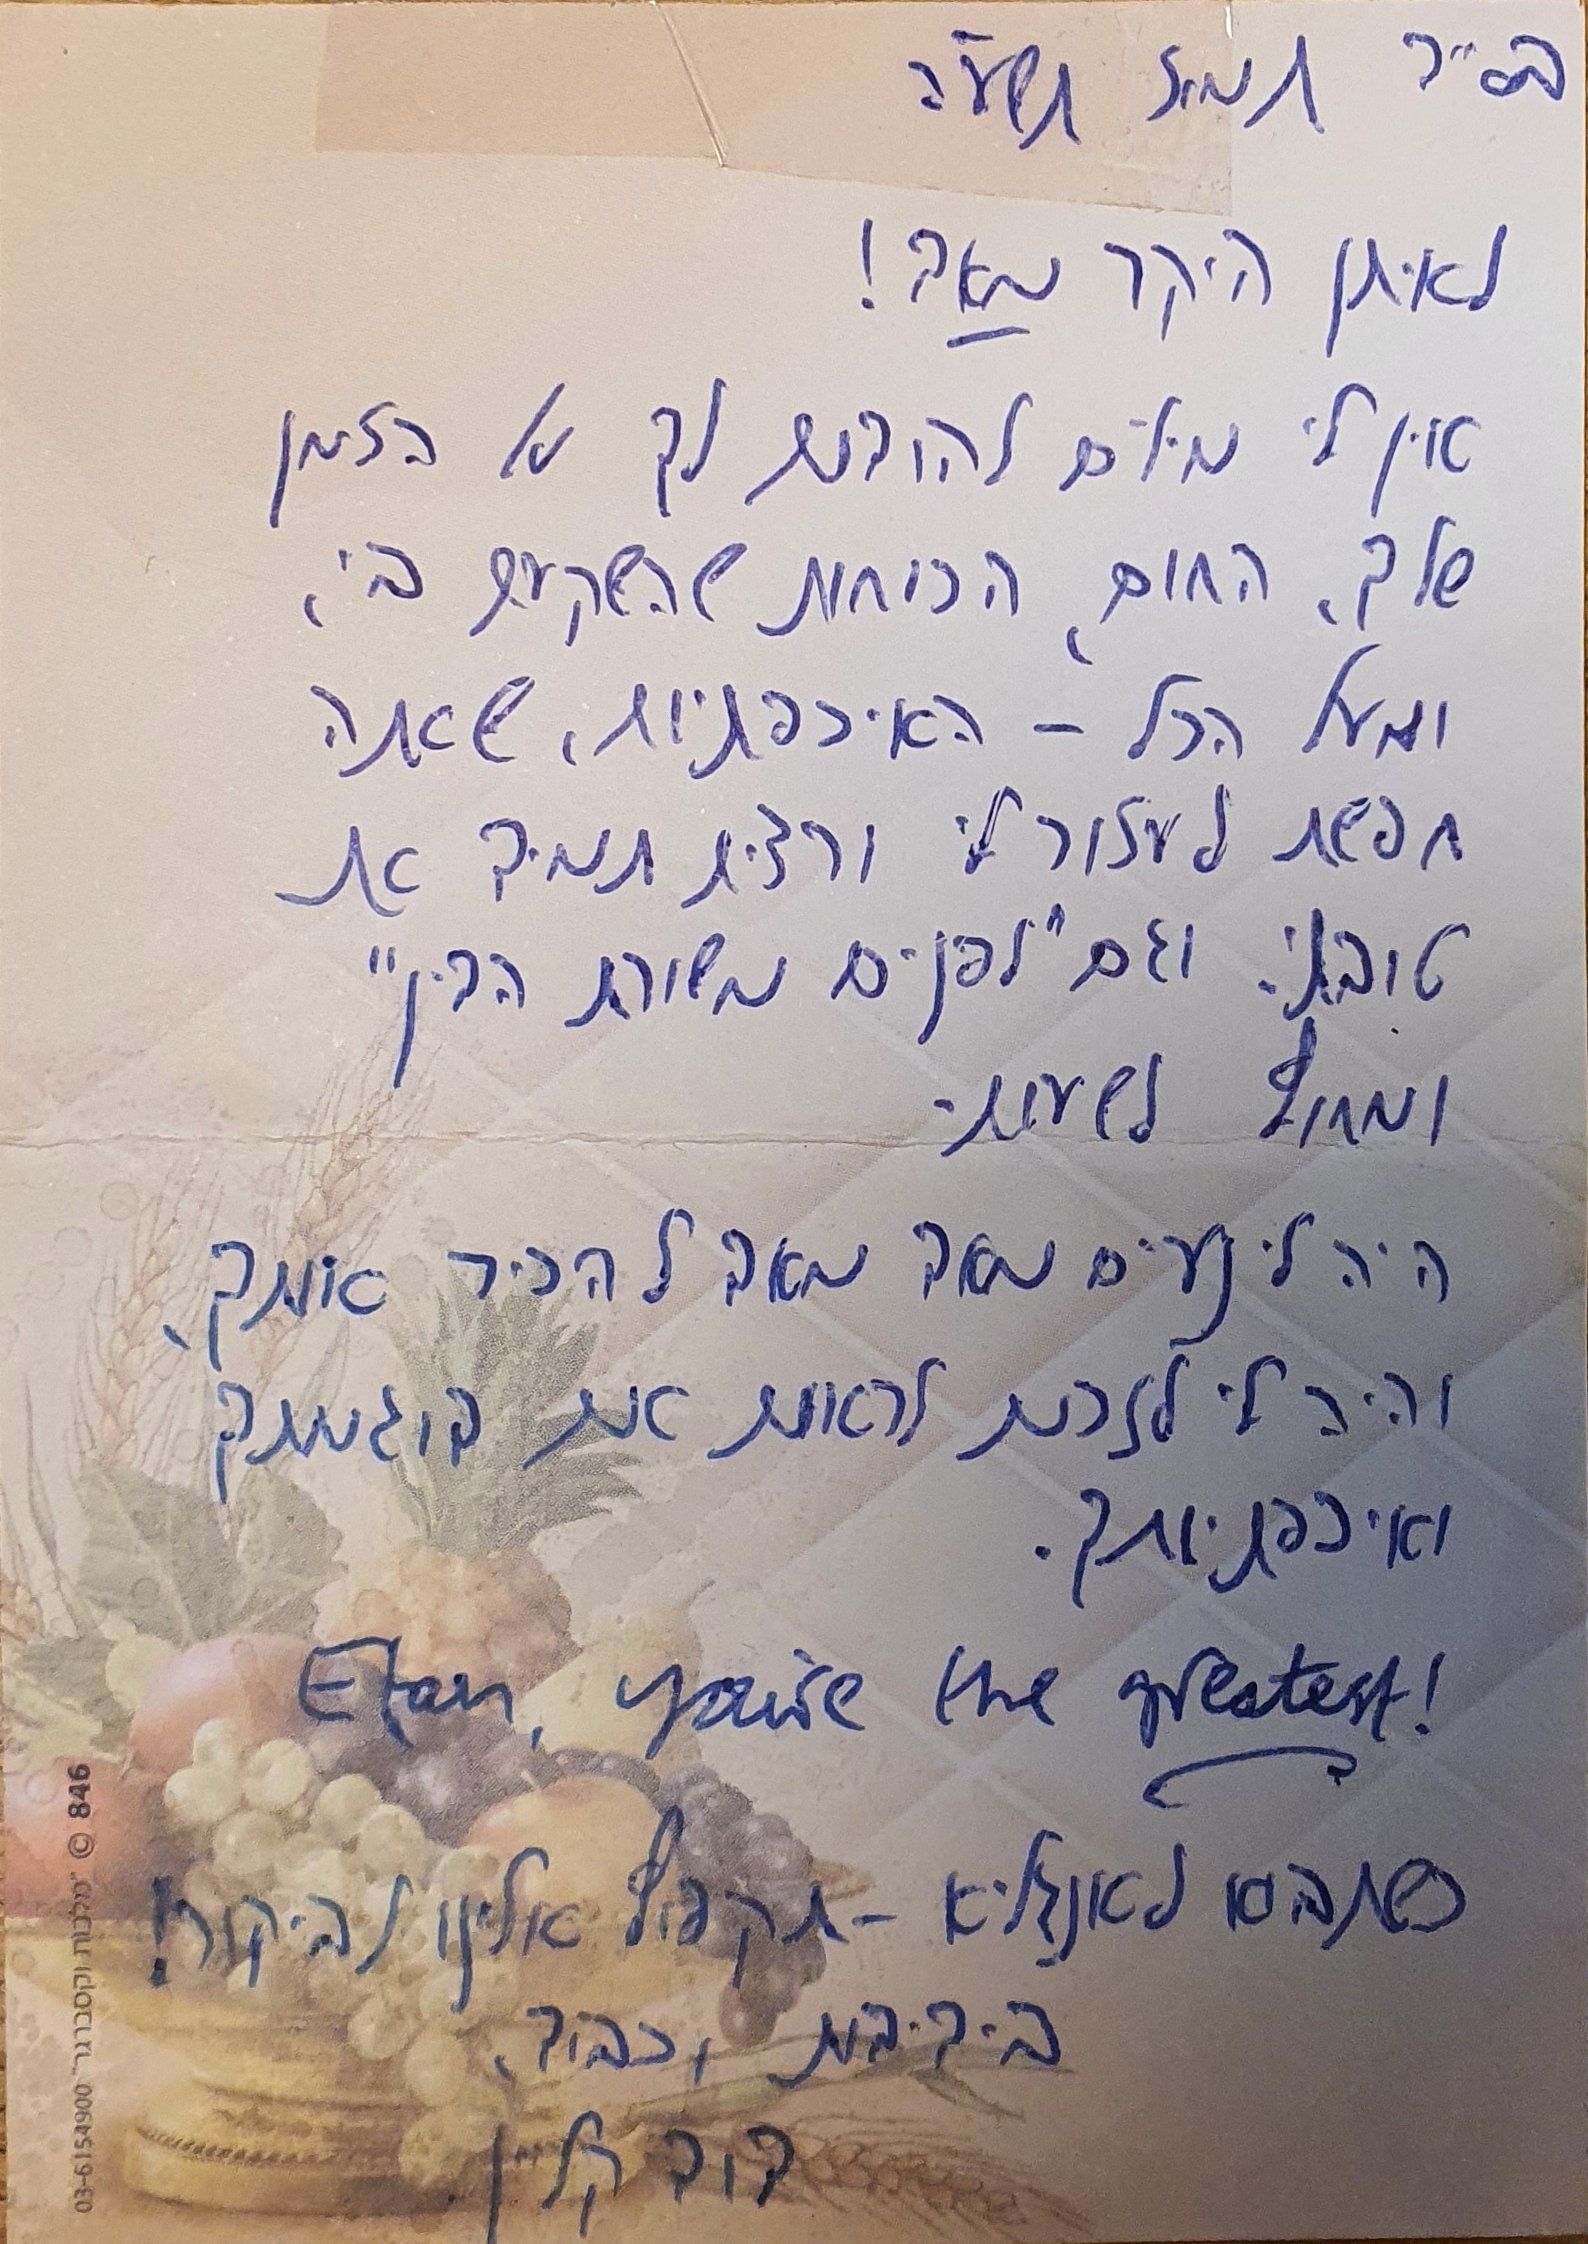 בס"ד תמוז תשע"ה
לאיתן היקר מאד!
אין לי מילים להודות לך על הזמן
שלך, החום, הכוחות שהשקעת בי,
ומעל הכל – האיכפתיות, שאתה
חפשת לעזור לי ורצית תמיד את
טובתי. וגם "לפנים משורת הדין"
ומחוץ לשעות.
היה לי נעים מאד מאד להכיר אותך,
והיה לי לזכות לראות את דוגמתך
ואיכפתיותך.
Etan, you're the greatest!
כשתבוא לאנגליא – תקפוץ אלינו לביקור!
בידידות וכבוד,
דוד קליין
03-6154900 © 846